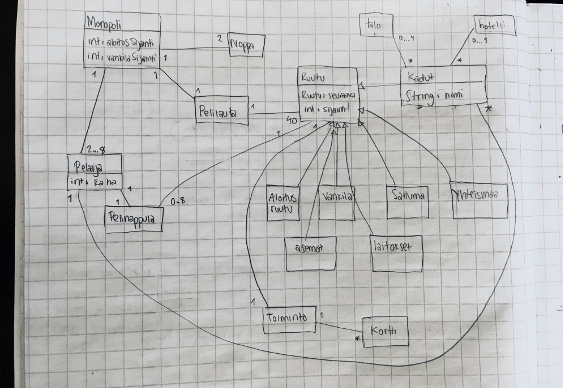 Monopoli
int: aloitus Sijainti
int: vankila Sijainti
2
Noppa
1
1
1
1
Pelilauta
1
40
Ruutu
Ruutu: seuraava
int: sijainti
talo
0..4
*
hotelli
0..1
*
Kadut
String: nimi
*
2...8
Pelaaja
int: Raha
1
1
1
Pelinappula
0..8
1
1
Aloitus
ruutu
Vankila
Sattuma
Yhteismaa
asemat
laitokset
1
Toiminto
1
*
Kortti